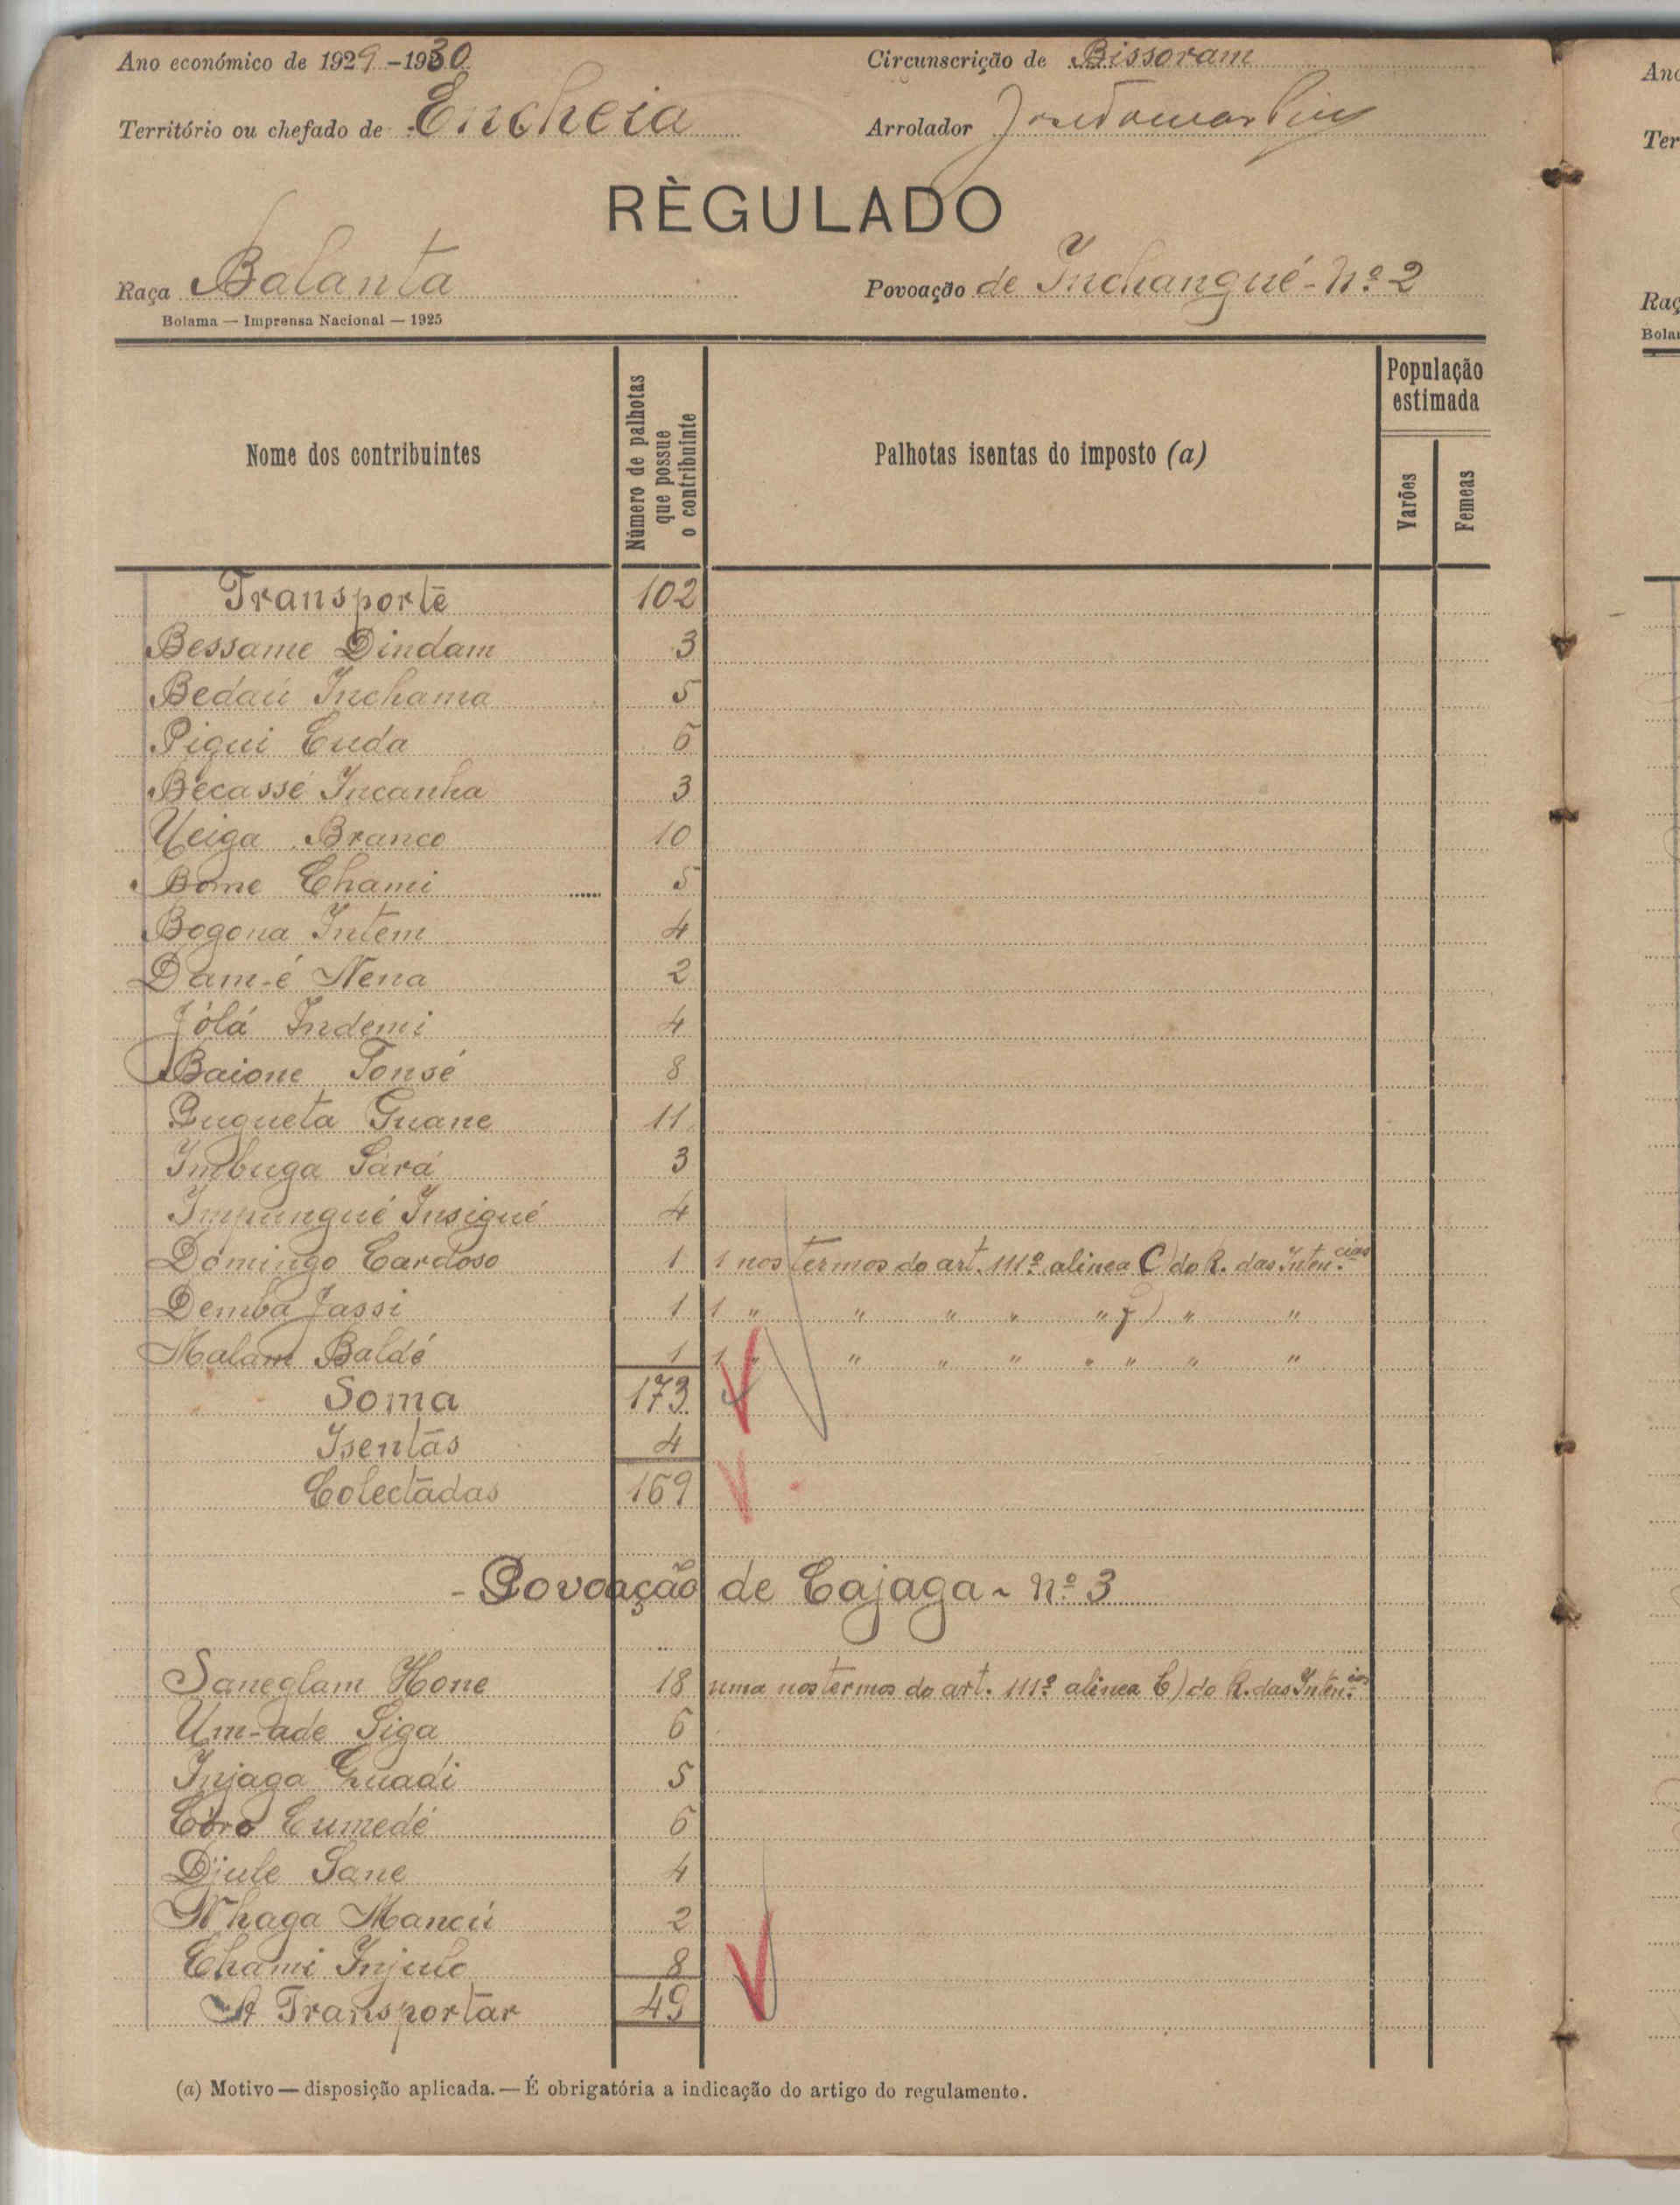 Ano económico de 1929-1930
Circunscrição de Bissoram
Território ou chefado de Encheia
Arrolador
RÈGULADO
Raça Balanta
Povoação de Inchangué - Nº 2
Bolama — Imprensa Nacional — 1925
Nome dos contribuintes
Número de palhotas que possue o contribuinte
Palhotas isentas do imposto (a)
População estimada
Varões
Femeas
Transporte 102
Bessame Dindam 3
Bedaú Inchama 5
Piqui Cuda 6
Becassé Incanha 3
Ueiga Branco 10
Bome Chami 5
Bogona Intem 4
Dam-é Nena 2
Jólá Indemi 4
Baione Tonsé 8
Puqueta Guane 11
Imbuga Sará 3
Impungué Insigué 4
Domingo Cardoso 1 1 nos termos do art. 111º alinea C) do R. das Inten.cias
Demba Jassi 1 1 " " " " " f) " "
Malam Baldé 1 1 " " " " " " " "
Soma 173
Isentas 4
Colectadas 169
- Povoação de Cajaga ~ Nº 3
Saneglam Hone 18 uma nos termos do art. 111º alinea C) do R. das Inten.cias
Um-ade Siga 6
Injaga Guadi 5
Córo Cumedé 6
Djule Sane 4
Nhaga Mancú 2
Chami Injulo 8
A Transportar 49
(a) Motivo — disposição aplicada. — É obrigatória a indicação do artigo do regulamento.